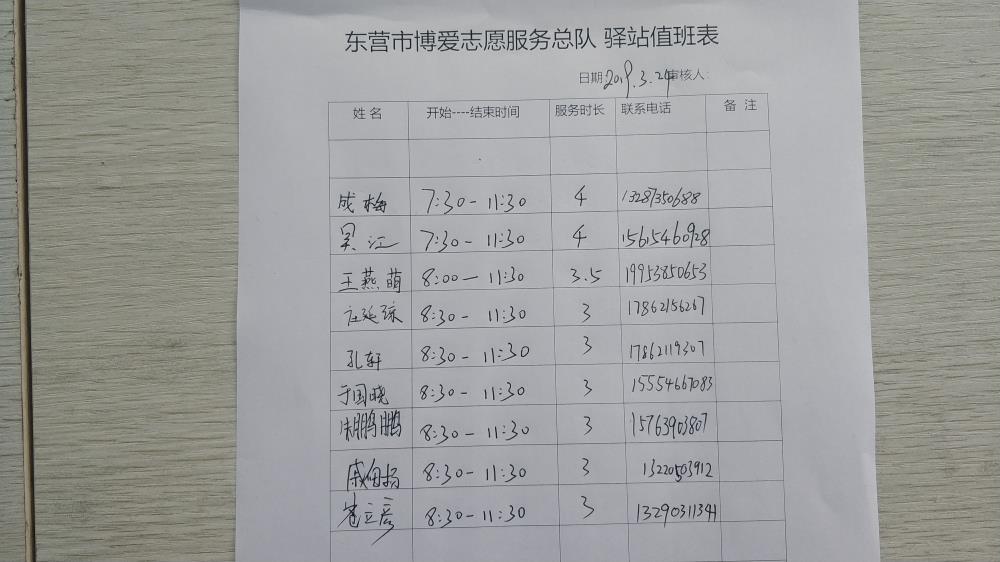 东营市博爱志愿服务总队 驿站值班表
日期 2019.3.24 审核人:
姓名 开始----结束时间 服务时长 联系电话 备 注
成梅 7:30-11:30 4 13287350688
吴江 7:30-11:30 4 15615460928
王燕萌 8:00-11:30 3.5 19953850653
8:30-11:30 3 17862156267
孔轩 8:30-11:30 3 17862119307
于国晓 8:30-11:30 3 15554667083
朱鹏鹏 8:30-11:30 3 15763903807
8:30-11:30 3 13220503912
苍立彦 8:30-11:30 3 13290311341